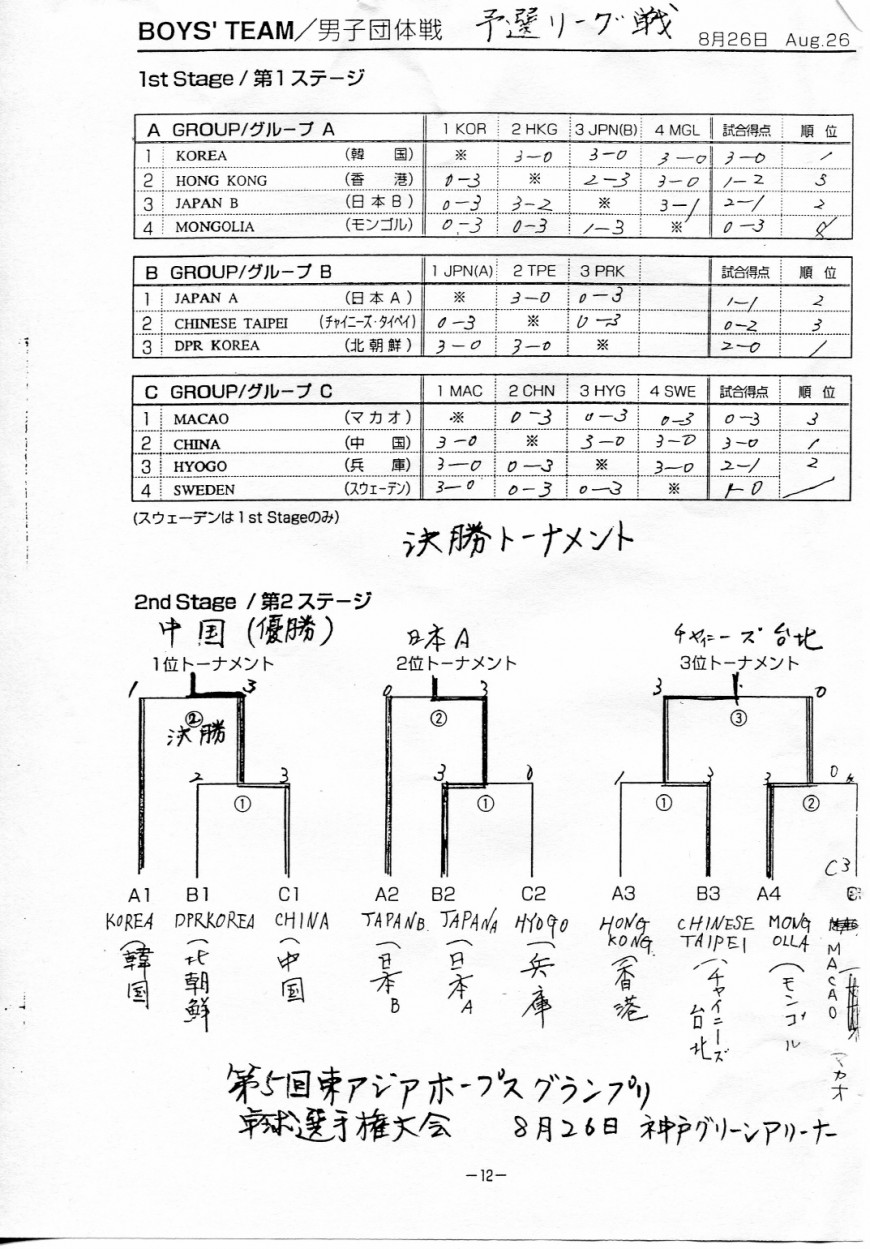 BOYS' TEAM/男子団体戦 予選リーグ戦 8月26日 Aug.26
1st Stage / 第1ステージ
A GROUP/グループ A 1 KOR 2 HKG 3 JPN(B) 4 MGL 試合得点 順位
1 KOREA (韓国) ※ 3-0 3-0 3-0 3-0 1
2 HONG KONG (香港) 0-3 ※ 2-3 3-0 1-2 3
3 JAPAN B (日本B) 0-3 3-2 ※ 3-1 2-1 2
4 MONGOLIA (モンゴル) 0-3 0-3 1-3 ※ 0-3
B GROUP/グループ B 1 JPN(A) 2 TPE 3 PRK 試合得点 順位
1 JAPAN A (日本A) ※ 3-0 0-3 1-1 2
2 CHINESE TAIPEI (チャイニーズ・タイペイ) 0-3 ※ 0-3 0-2 3
3 DPR KOREA (北朝鮮) 3-0 3-0 ※ 2-0 1
C GROUP/グループ C 1 MAC 2 CHN 3 HYG 4 SWE 試合得点 順位
1 MACAO (マカオ) ※ 0-3 0-3 0-3 0-3 3
2 CHINA (中国) 3-0 ※ 3-0 3-0 3-0 1
3 HYOGO (兵庫) 3-0 0-3 ※ 3-0 2-1 2
4 SWEDEN (スウェーデン) 3-0 0-3 0-3 ※
(スウェーデンは1st Stageのみ)
決勝トーナメント
2nd Stage / 第2ステージ
中国(優勝) 日本A チャイニーズ台北
1位トーナメント 2位トーナメント 3位トーナメント
1 3 0 3 3 0
② ② ③
決勝
2 3 3 0 1 3 3 0
① ① ① ②
C3
A1 B1 C1 A2 B2 C2 A3 B3 A4
KOREA DPRKOREA CHINA JAPANB. JAPANA HYOGO HONG KONG CHINESE TAIPEI MONGOLLA MACAO
(韓国 (北朝鮮 (中国 (日本B (日本A (兵庫 (香港 (チャイニーズ台北 (モンゴル マカオ
第5回東アジアホープスグランプリ
卓球選手権大会 8月26日 神戸グリーンアリーナー
-12-